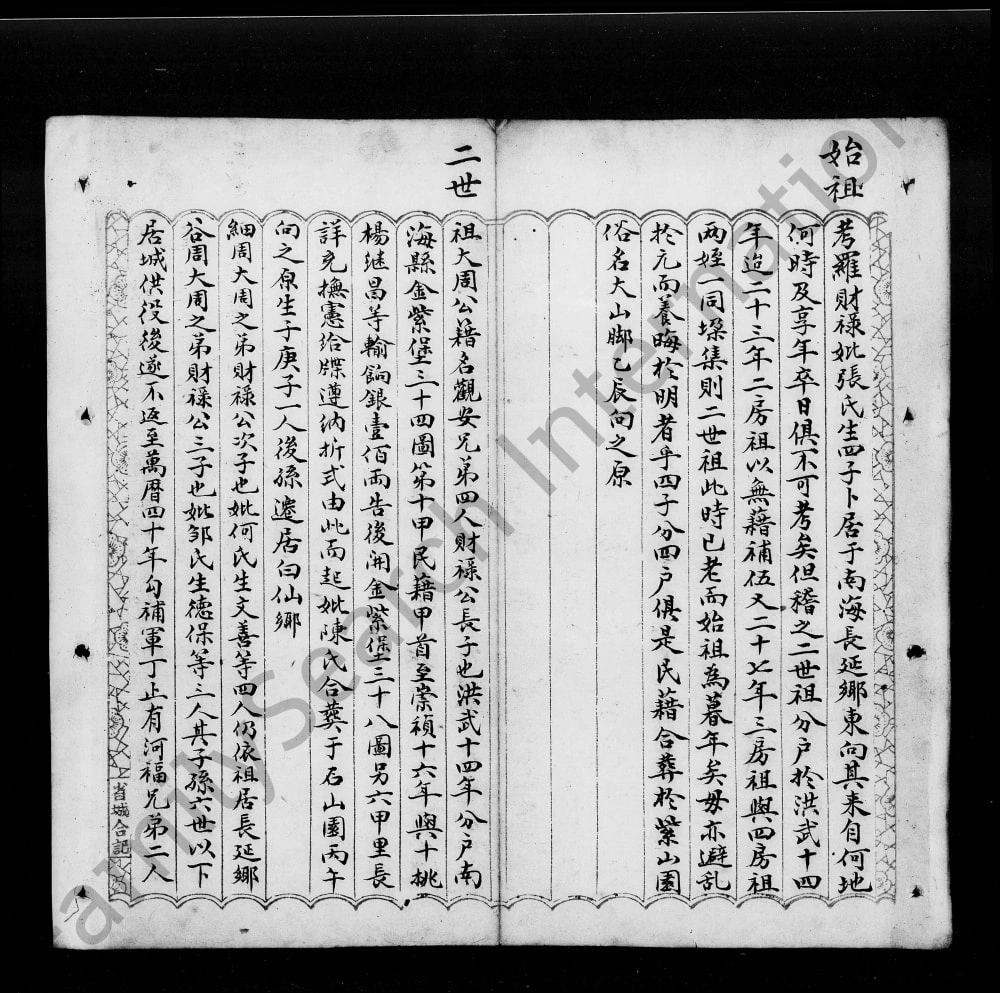 始祖
考羅財祿妣張氏生四子卜居于南海長延鄉東向其来自何地
何時及享年卒日俱不可考矣但稽之二世祖分户於洪武十四
年迨二十三年二房祖以無藉補伍又二十七年三房祖與四房祖
两姪一同垜集則二世祖此時已老而始祖為暮年矣毋亦避乱
於元而養晦於明者乎四子分四户俱是民藉合葬於紫山園
俗名大山脚乙辰向之原
二世
祖大周公藉名觀安兄弟四人財祿公長子也洪武十四年分户南
海縣金紫堡三十四圖第十甲民藉甲首至崇禎十六年與十排
楊継昌等輸餉銀壹佰両告後開金紫堡三十八圖另六甲里長
詳充撫憲给牒遵納折式由此而起妣陳氏合葬于右山園丙午
向之原生子庚子一人後孫遷居白仙鄉
細周大周之弟財祿公次子也妣何氏生文善等四人仍依祖居長延鄉
谷周大周之弟財祿公三子也妣邹氏生德保等三人其子孫六世以下
居城供役後遂不返至萬曆四十年勾補軍丁止有河福兄弟二人
省城合記
FamilySearch International